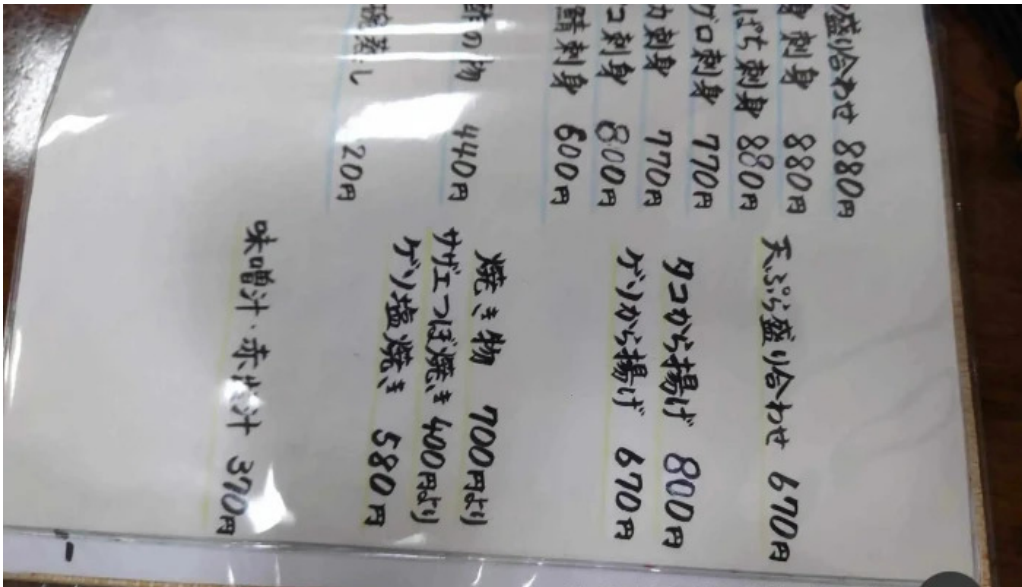 盛り合わせ 880円
身 刺身 880円
ぱち刺身 880円
グロ刺身 770円
カ刺身 770円
コ刺身 800円
鯖刺身 600円
酢の物 440円
碗蒸し 20円
天ぷら盛り合わせ 670円
タコから揚げ 800円
ゲソから揚げ 670円
焼き物 700円より
サザエつぼ焼き 400円より
ゲソ塩焼き 580円
味噌汁・赤汁 370円